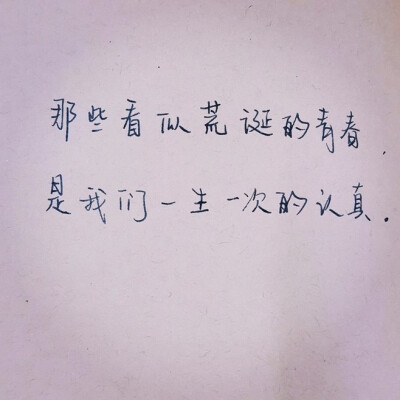 那些看似荒诞的青春,
是我们一生一次的认真.